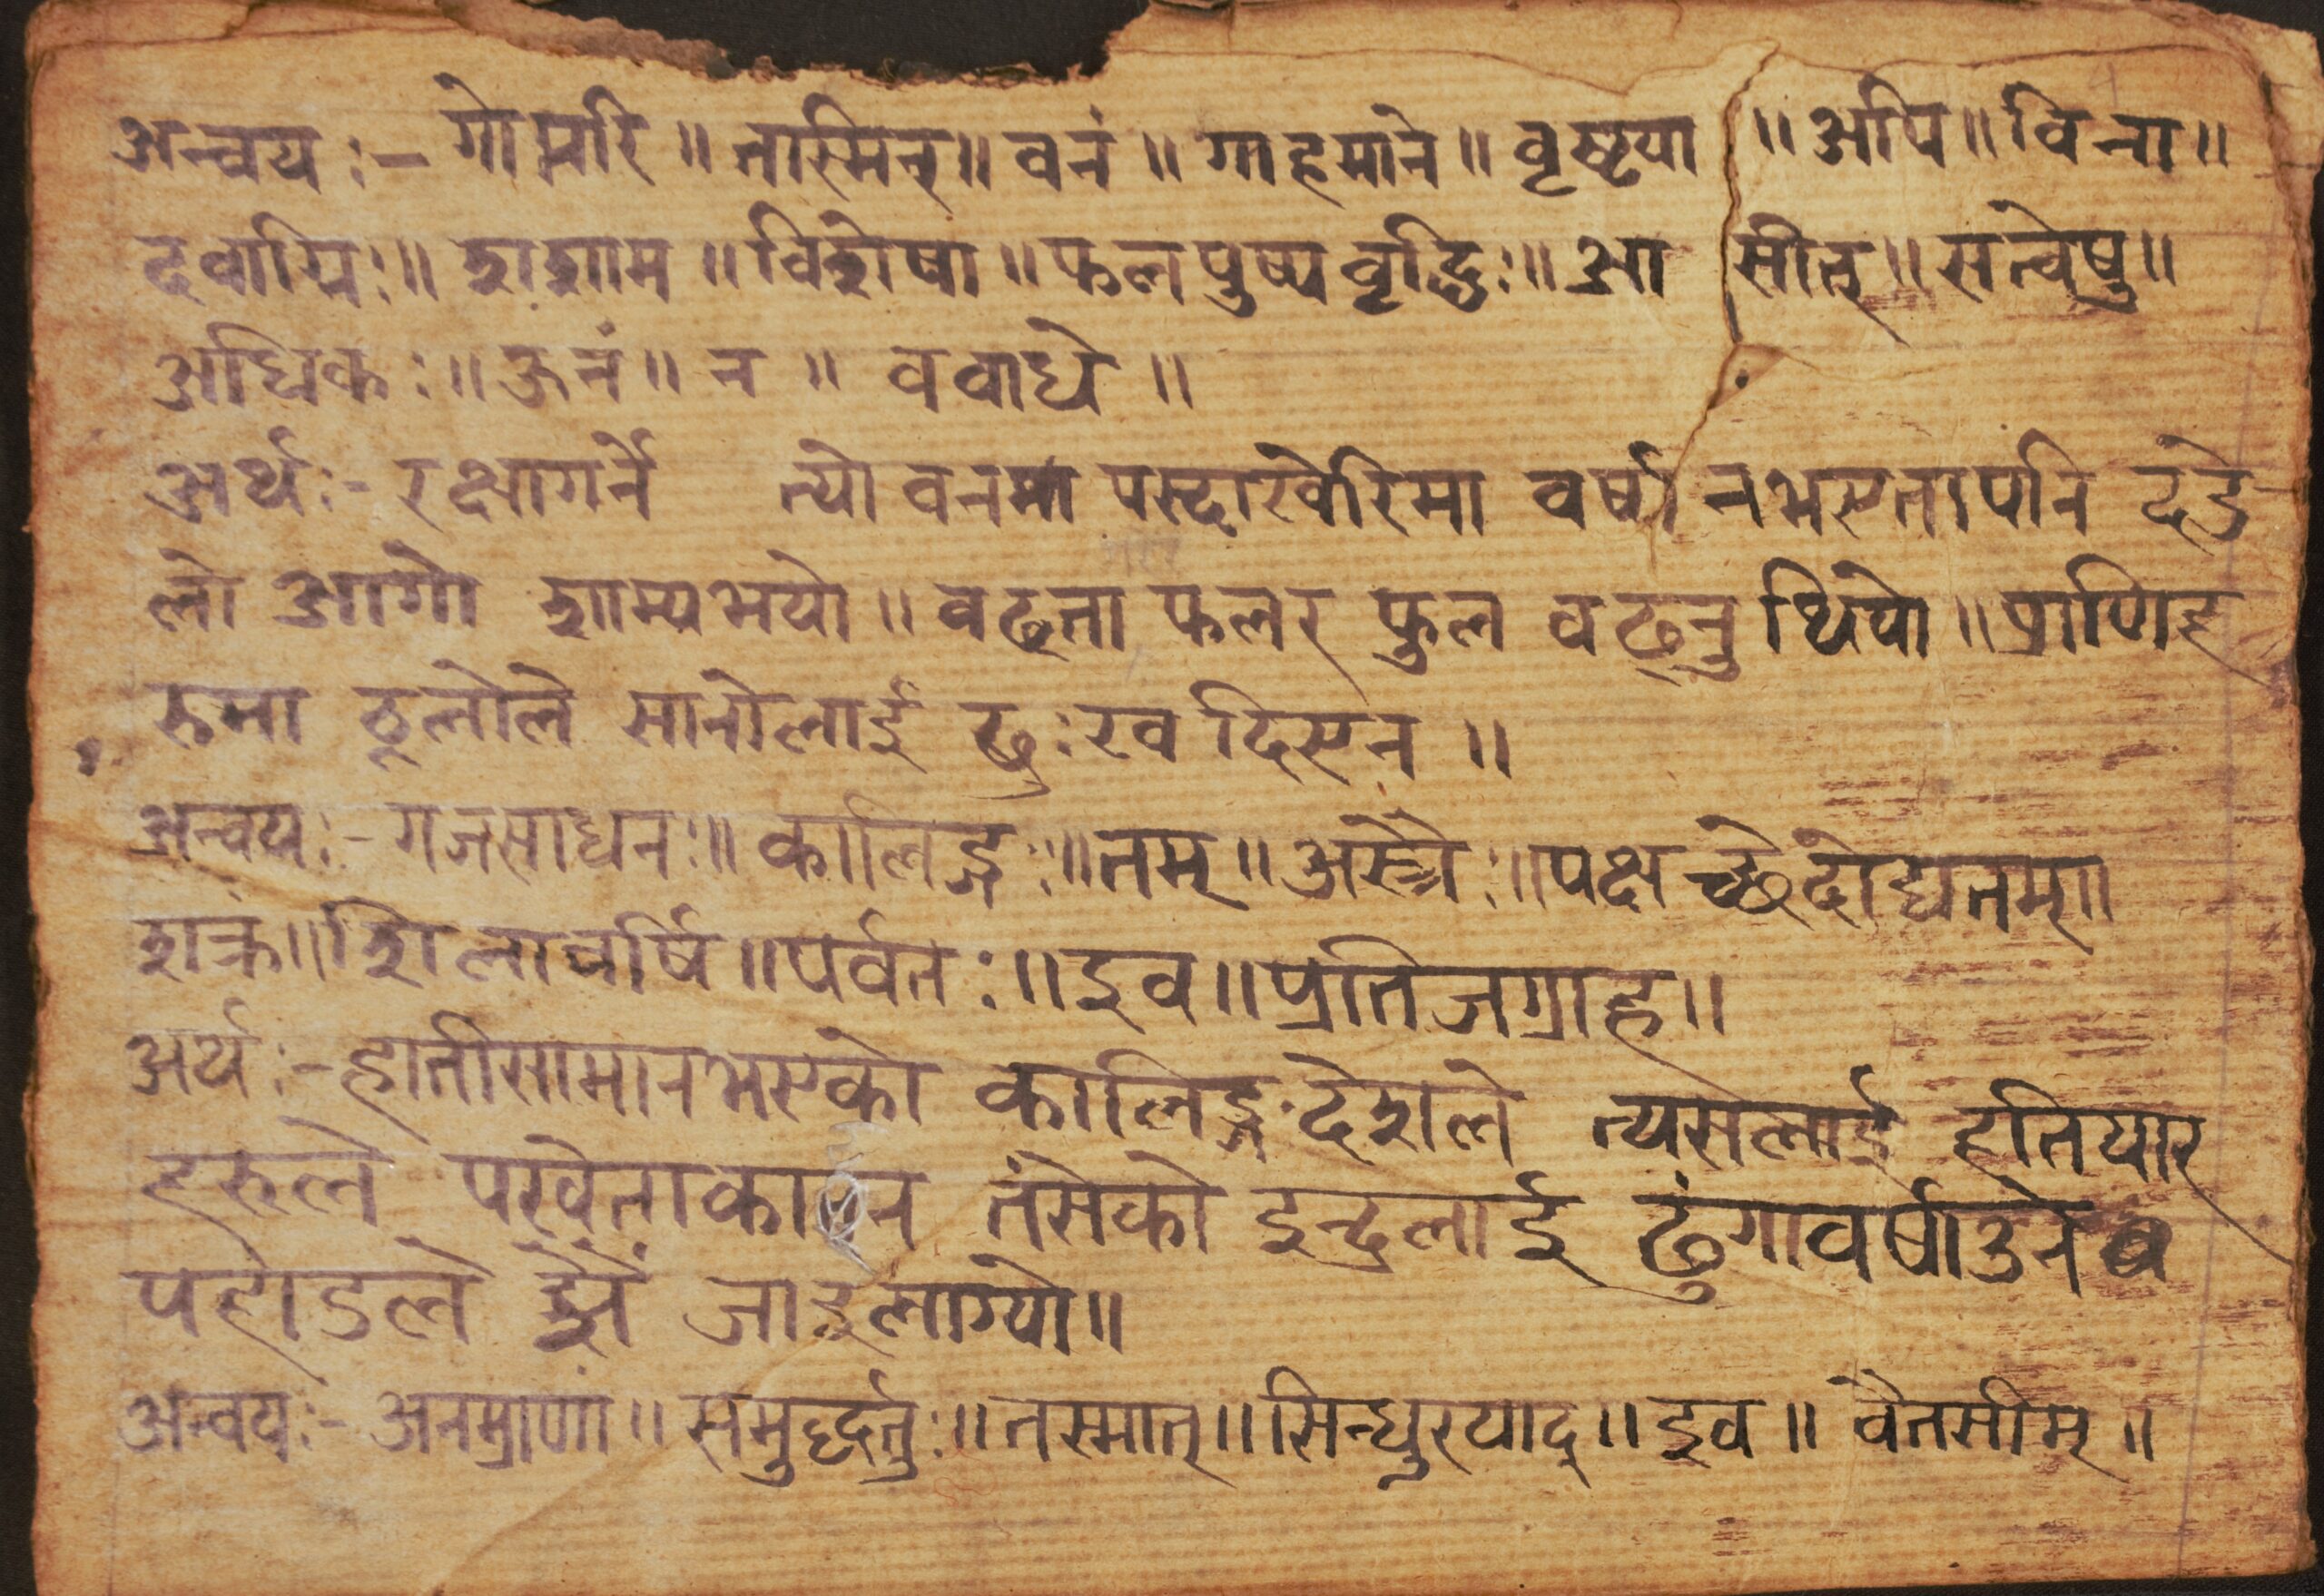 अन्वय :- गोप्तरि ॥ तास्मिन् ॥ वनं ॥ गाहमाने ॥ वृष्ट्या ॥ अपि ॥ विना ॥
दवाग्निः ॥ शशाम ॥ विशेषा ॥ फलपुष्पवृद्धिः ॥ आसीत् ॥ सत्वेषु ॥
अधिकः ॥ ऊनं ॥ न ॥ ववाधे ॥
अर्थः- रक्षागर्ने त्यो वनमा पस्दाखेरिमा वर्षा नभएतापनि डढे
लो आगो शाम्यभयो ॥ वढ्ता फलर फुल वढ्नु थियो ॥ प्राणिह
रुमा ठूलोले सानोलाई दुःख दिएन ॥
अन्वयः- गजसाधनः ॥ कालिङ्गः ॥ तम् ॥ अस्त्रैः ॥ पक्षच्छेदोद्यतम् ॥
शक्रं ॥ शिलावर्षि ॥ पर्वतः ॥ इव ॥ प्रतिजग्राह ॥
अर्थः- हातीसामानभएको कालिङ्गदेशले त्यसलाई हतियार
हरुले पखेताकाटन तंसेको इन्द्रलाई ढुंगावर्षाउने
पहाडले झैं जाइलाग्यो ॥
अन्वयः- अनम्राणां ॥ समुर्द्धतुः ॥ तस्मात् ॥ सिन्धुरयाद् ॥ इव ॥ वैतसीम् ॥